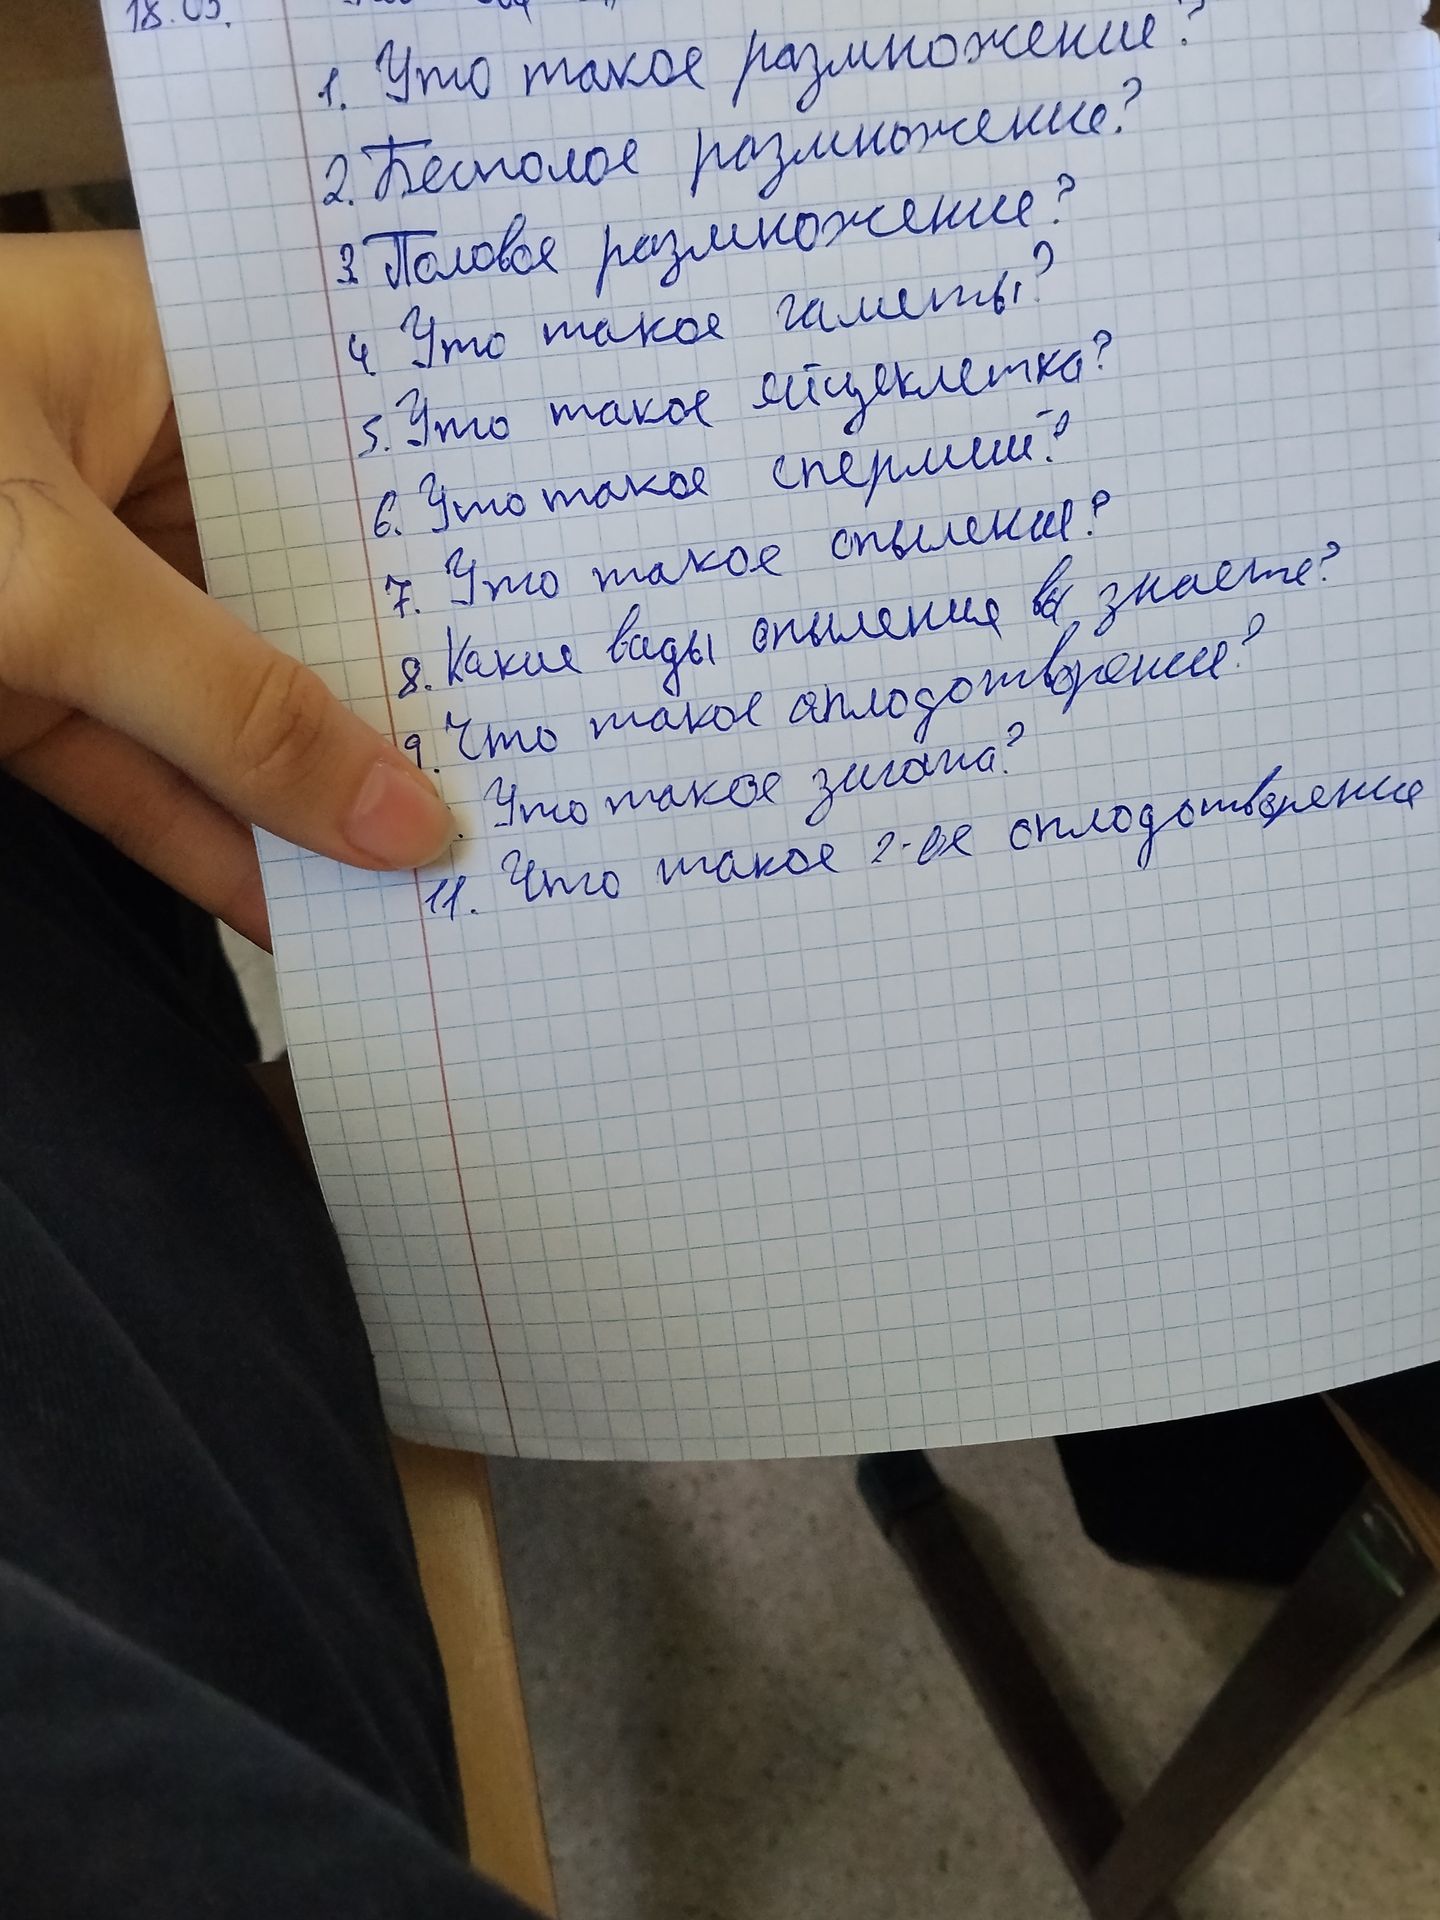 18.05.
1. Что такое размножение?
2. Бесполое размножение?
3 Половое размножение?
4 Что такое гаметы?
5. Что такое яйцеклетка?
6. Что такое спермий?
7. Что такое опыление?
8. Какие виды опыления вы знаете?
9. Что такое оплодотворение?
. Что такое зигота?
11. Что такое 2-ое оплодотворение